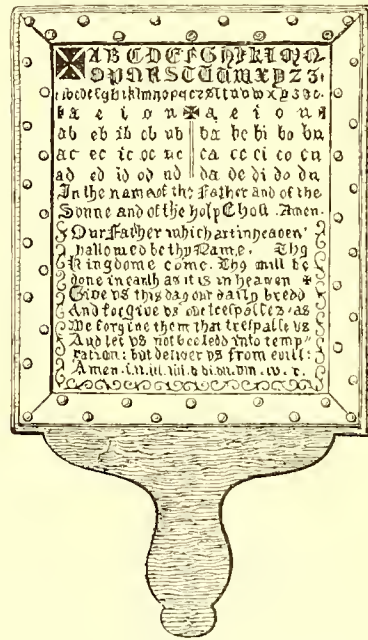 A B C D E F G H I K L M N
O P Q R S T U W X Y Z
a e i o u ✠ a e i o u
ab eb ib ob ub ba be bi bo bu
ac ec ic oc uc ca ce ci co cu
ad ed id od ud da de di do du
In the name of the Father and of the
Sonne and of the holy Ghost . Amen.
Our Father which art in heaven
hallowed be thy Name . Thy
Kingdome come. Thy will be
done in earth as it is in heaven ✠
Give vs this day our daily bredd
And forgive vs our trespasses . as
We forgive them that trespasse vs
And let vs not bee ledd into temp"
tation : but deliver vs from evill :
Amen . i. ii. iii. iiii. v vi. vii. viii. ix. x.